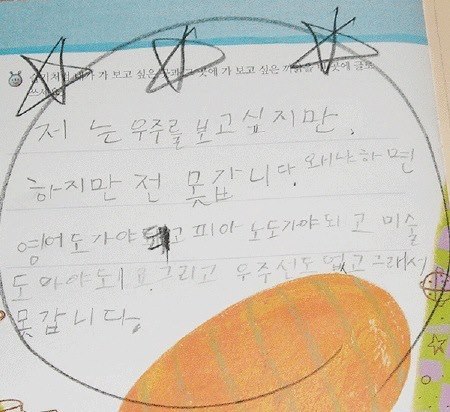 내가 가 보고 싶은 곳에 가 보고 싶은
저 는 우주를 보고 싶지만,
하지만 전 못갑니다. 왜냐하면
영어도 가야 되고 피아노도가야되고 미술
도 가야되요. 그리고 우주선도 없고 그래서
못갑니다.